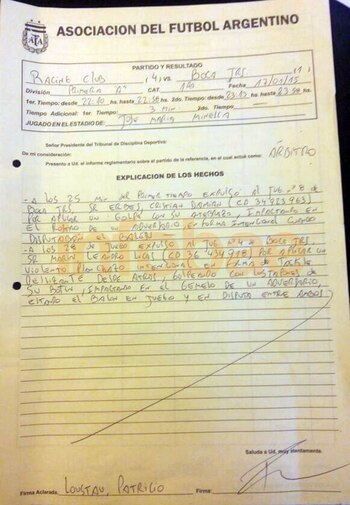 ASOCIACION DEL FUTBOL ARGENTINO
AFA
PARTIDO Y RESULTADO
RACING CLUB (4) vs. BOCA JRS (1)
División PRIMERA "A" CAT 1RA 17/01/15
1er. Tiempo: desde 22.10 hs. hasta hs. 2do. Tiempo: desde 23.13 hs. hasta hs.
Tiempo Adicional: 1er. Tiempo: 3 min. 2do. Tiempo:
JUGADO EN EL ESTADIO DE: JOSE MARIA MINELLA
Señor Presidente del Tribunal de Disciplina Deportiva:
De mi consideración:
Presento a Ud. el informe reglamentario sobre el partido de la referencia, en el cual actué como: ARBITRO
EXPLICACION DE LOS HECHOS
- A LOS 25 MIN DEL PRIMER TIEMPO EXPULSO AL JUG Nº 8 DE
BOCA JRS, SR ERBES CRISTIAN DAMIAN (CD 34923963)
POR APLICAR UN GOLPE CON SU ANTEBRAZO, IMPACTANDO EN
EL ROSTRO DE SU ADVERSARIO, EN FORMA INTENCIONAL CUANDO
DISPUTABAN EL BALON
- A LOS 28 DE JUEGO EXPULSO AL JUG Nº 4 DE BOCA JRS
SR MARIN LEANDRO LUCAS (CD 36434978) POR APLICAR UN
VIOLENTO PLANCHAZO INTENCIONAL EN FORMA DE TACKLE
DESLIZANTE DESDE ATRAS, GOLPEANDO CON LOS TAPONES DE
SU BOTIN, IMPACTANDO EN EL GEMELO DE UN ADVERSARIO,
ESTANDO EL BALON EN JUEGO Y EN DISPUTA ENTRE AMBOS
Saluda a Ud. muy atentamente.
Firma Aclarada: LOUSTAU, PATRICIO Firma: